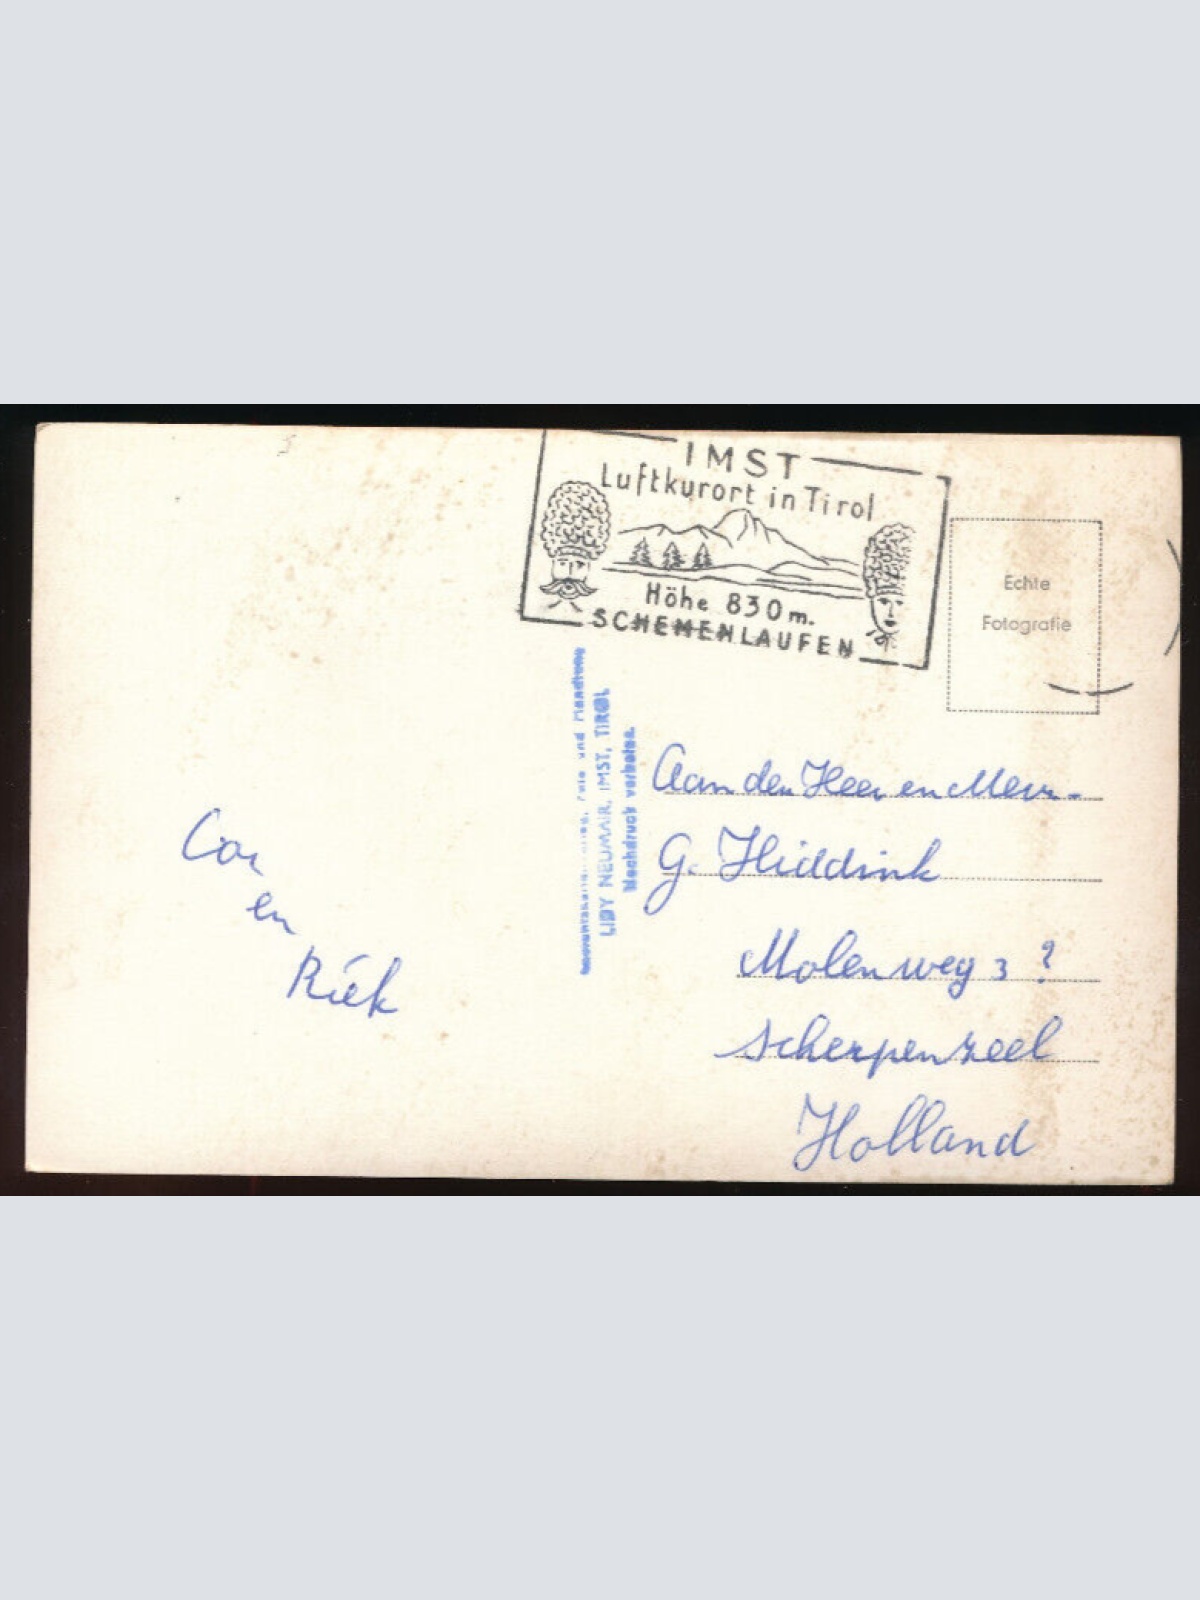 IMST
Luftkurort in Tirol
Höhe 830 m.
SCHEMENLAUFEN
Echte
Fotografie
und Handlung
LIDY NEUMAIR, IMST, TIROL
Nachdruck verboten.
Cor
en
Riek
Aan den Heer en Mevr.
G. Hiddink
Molenweg 3 ?
Scherpenzeel
Holland